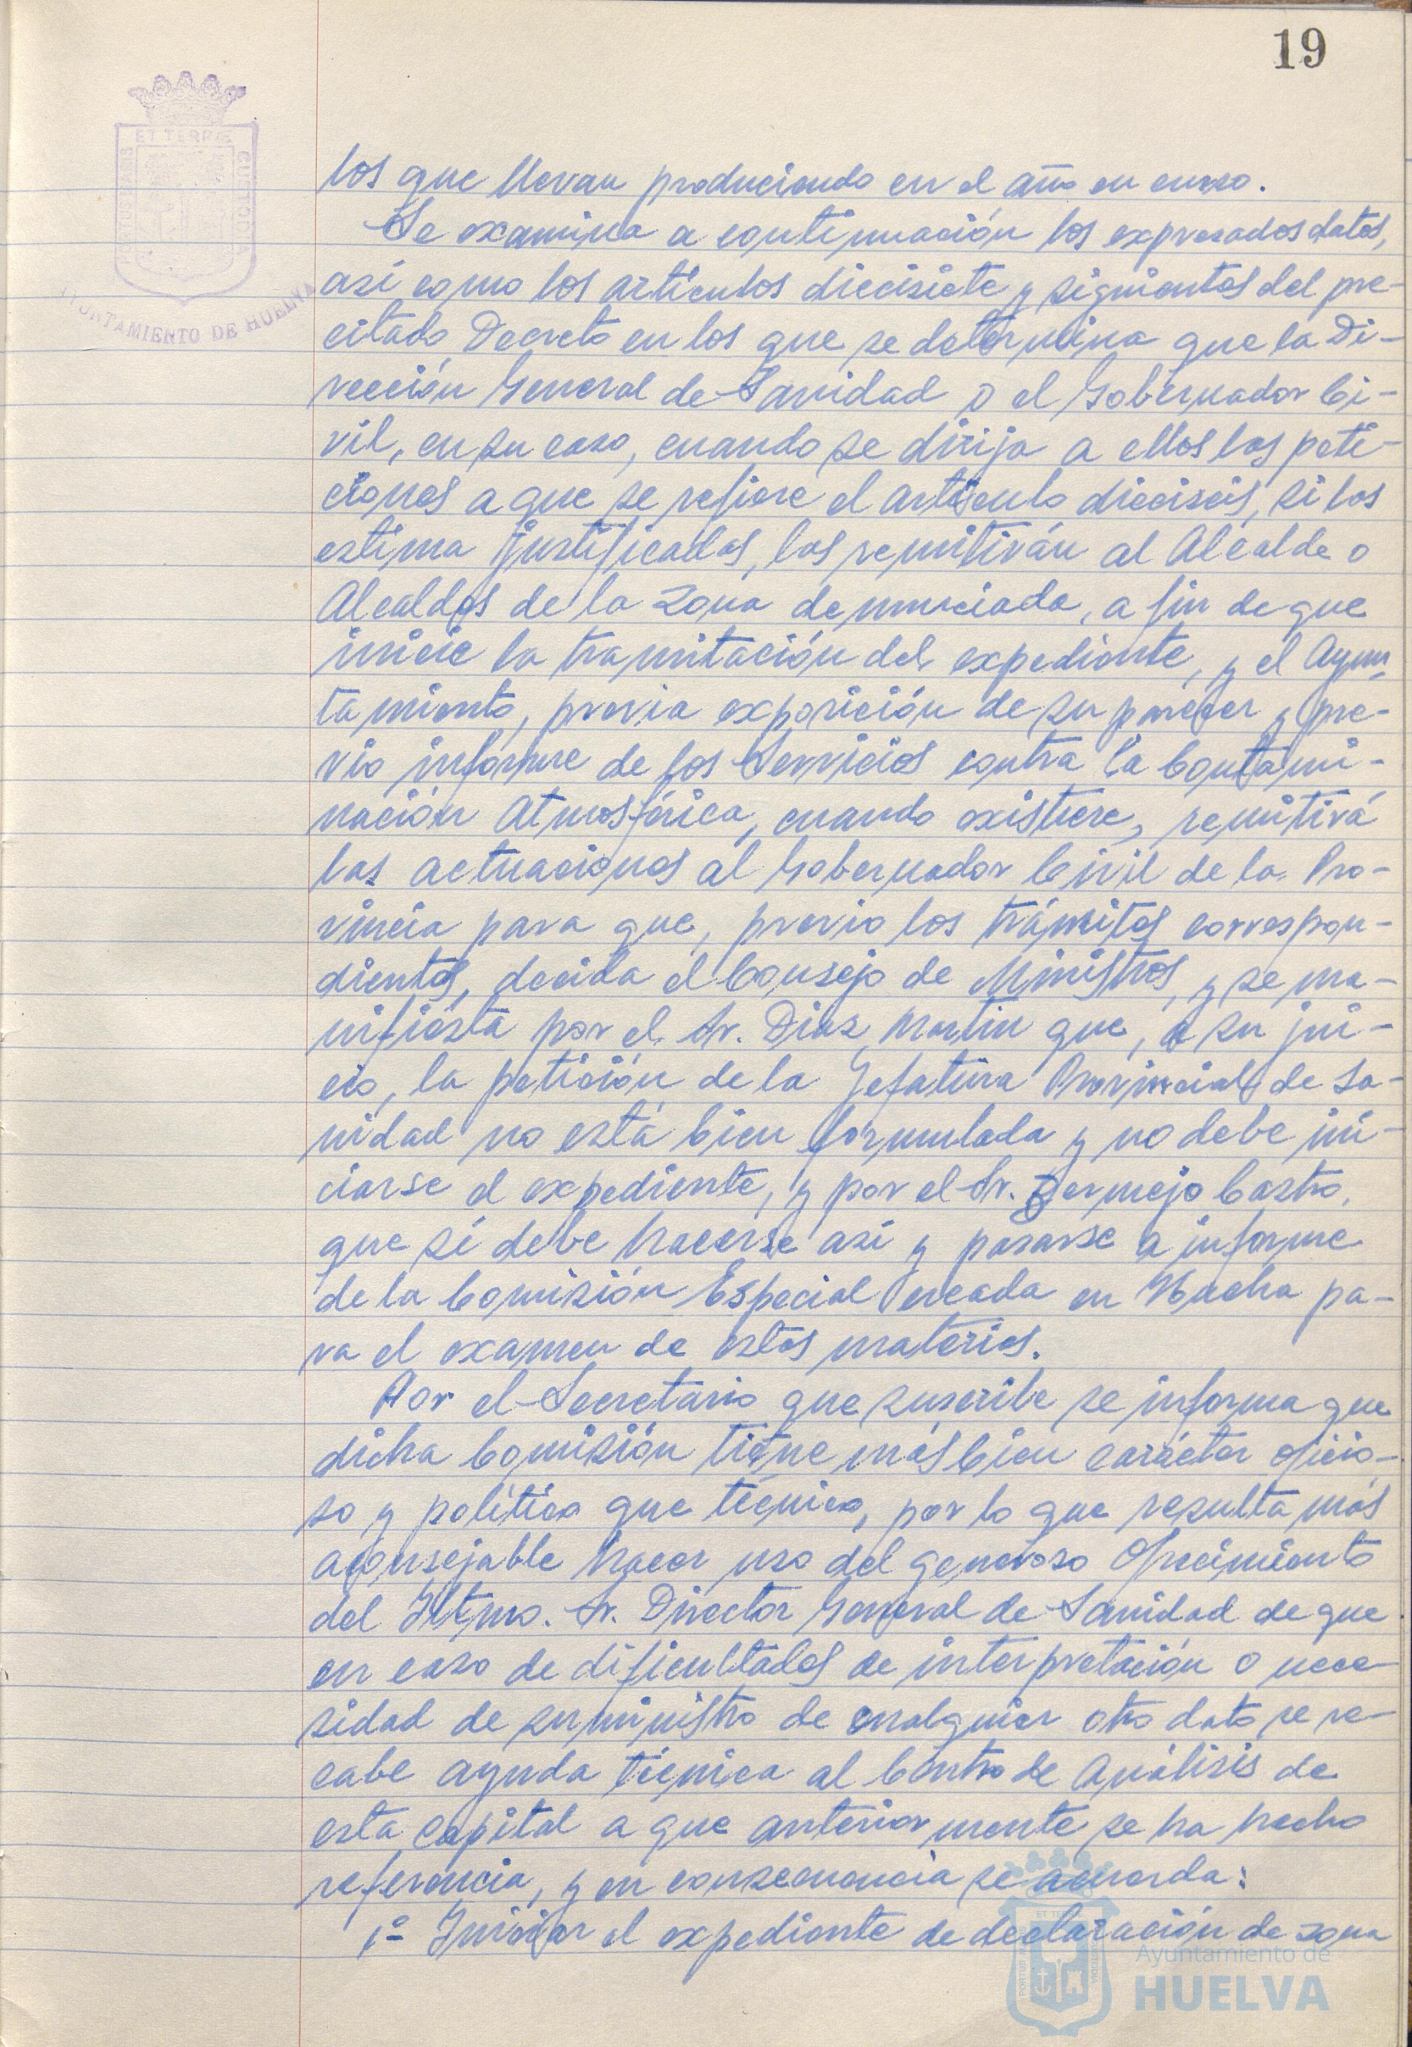 19
ET TERRÆ
PORTUS MARIS
CUSTODIA
AYUNTAMIENTO DE HUELVA
los que llevan produciendo en el año en curso.
Se examina a continuación los expresados datos,
así como los artículos diecisiete y siguientes del pre-
citado Decreto en los que se determina que la Di-
rección General de Sanidad o el Gobernador Ci-
vil, en su caso, cuando se dirija a ellos las peti-
ciones a que se refiere el artículo dieciseis, si los
estima justificados, las remitirán al Alcalde o
Alcaldes de la zona denunciada, a fin de que
inicie la tramitación del expediente, y el Ayun-
tamiento, previa exposición de su parecer y pre-
vio informe de los Servicios contra la Contami-
nación Atmosférica, cuando existiere, remitirá
las actuaciones al Gobernador Civil de la Pro-
vincia para que, previo los trámites correspon-
dientes, decida el Consejo de Ministros, y se ma-
nifiesta por el Sr. Diaz Martin que, a su jui-
cio, la petición de la Jefatura Provincial de Sa-
nidad no está bien formulada y no debe ini-
ciarse el expediente, y por el Sr. Bermejo Castro,
que sí debe hacerse así y pasarse a informe
de la Comisión Especial creada en Huelva pa-
ra el examen de estas materias.
Por el Secretario que suscribe se informa que
dicha Comisión tiene más bien carácter oficio-
so y político que técnico, por lo que resulta más
aconsejable hacer uso del generoso ofrecimiento
del Iltmo. Sr. Director General de Sanidad de que
en caso de dificultades de interpretación o nece-
sidad de suministro de cualquier otro dato se re-
cabe ayuda técnica al Centro de Análisis de
esta capital a que anteriormente se ha hecho
referencia, y en consecuencia se acuerda:
1º Iniciar el expediente de declaración de zona
Ayuntamiento de
HUELVA